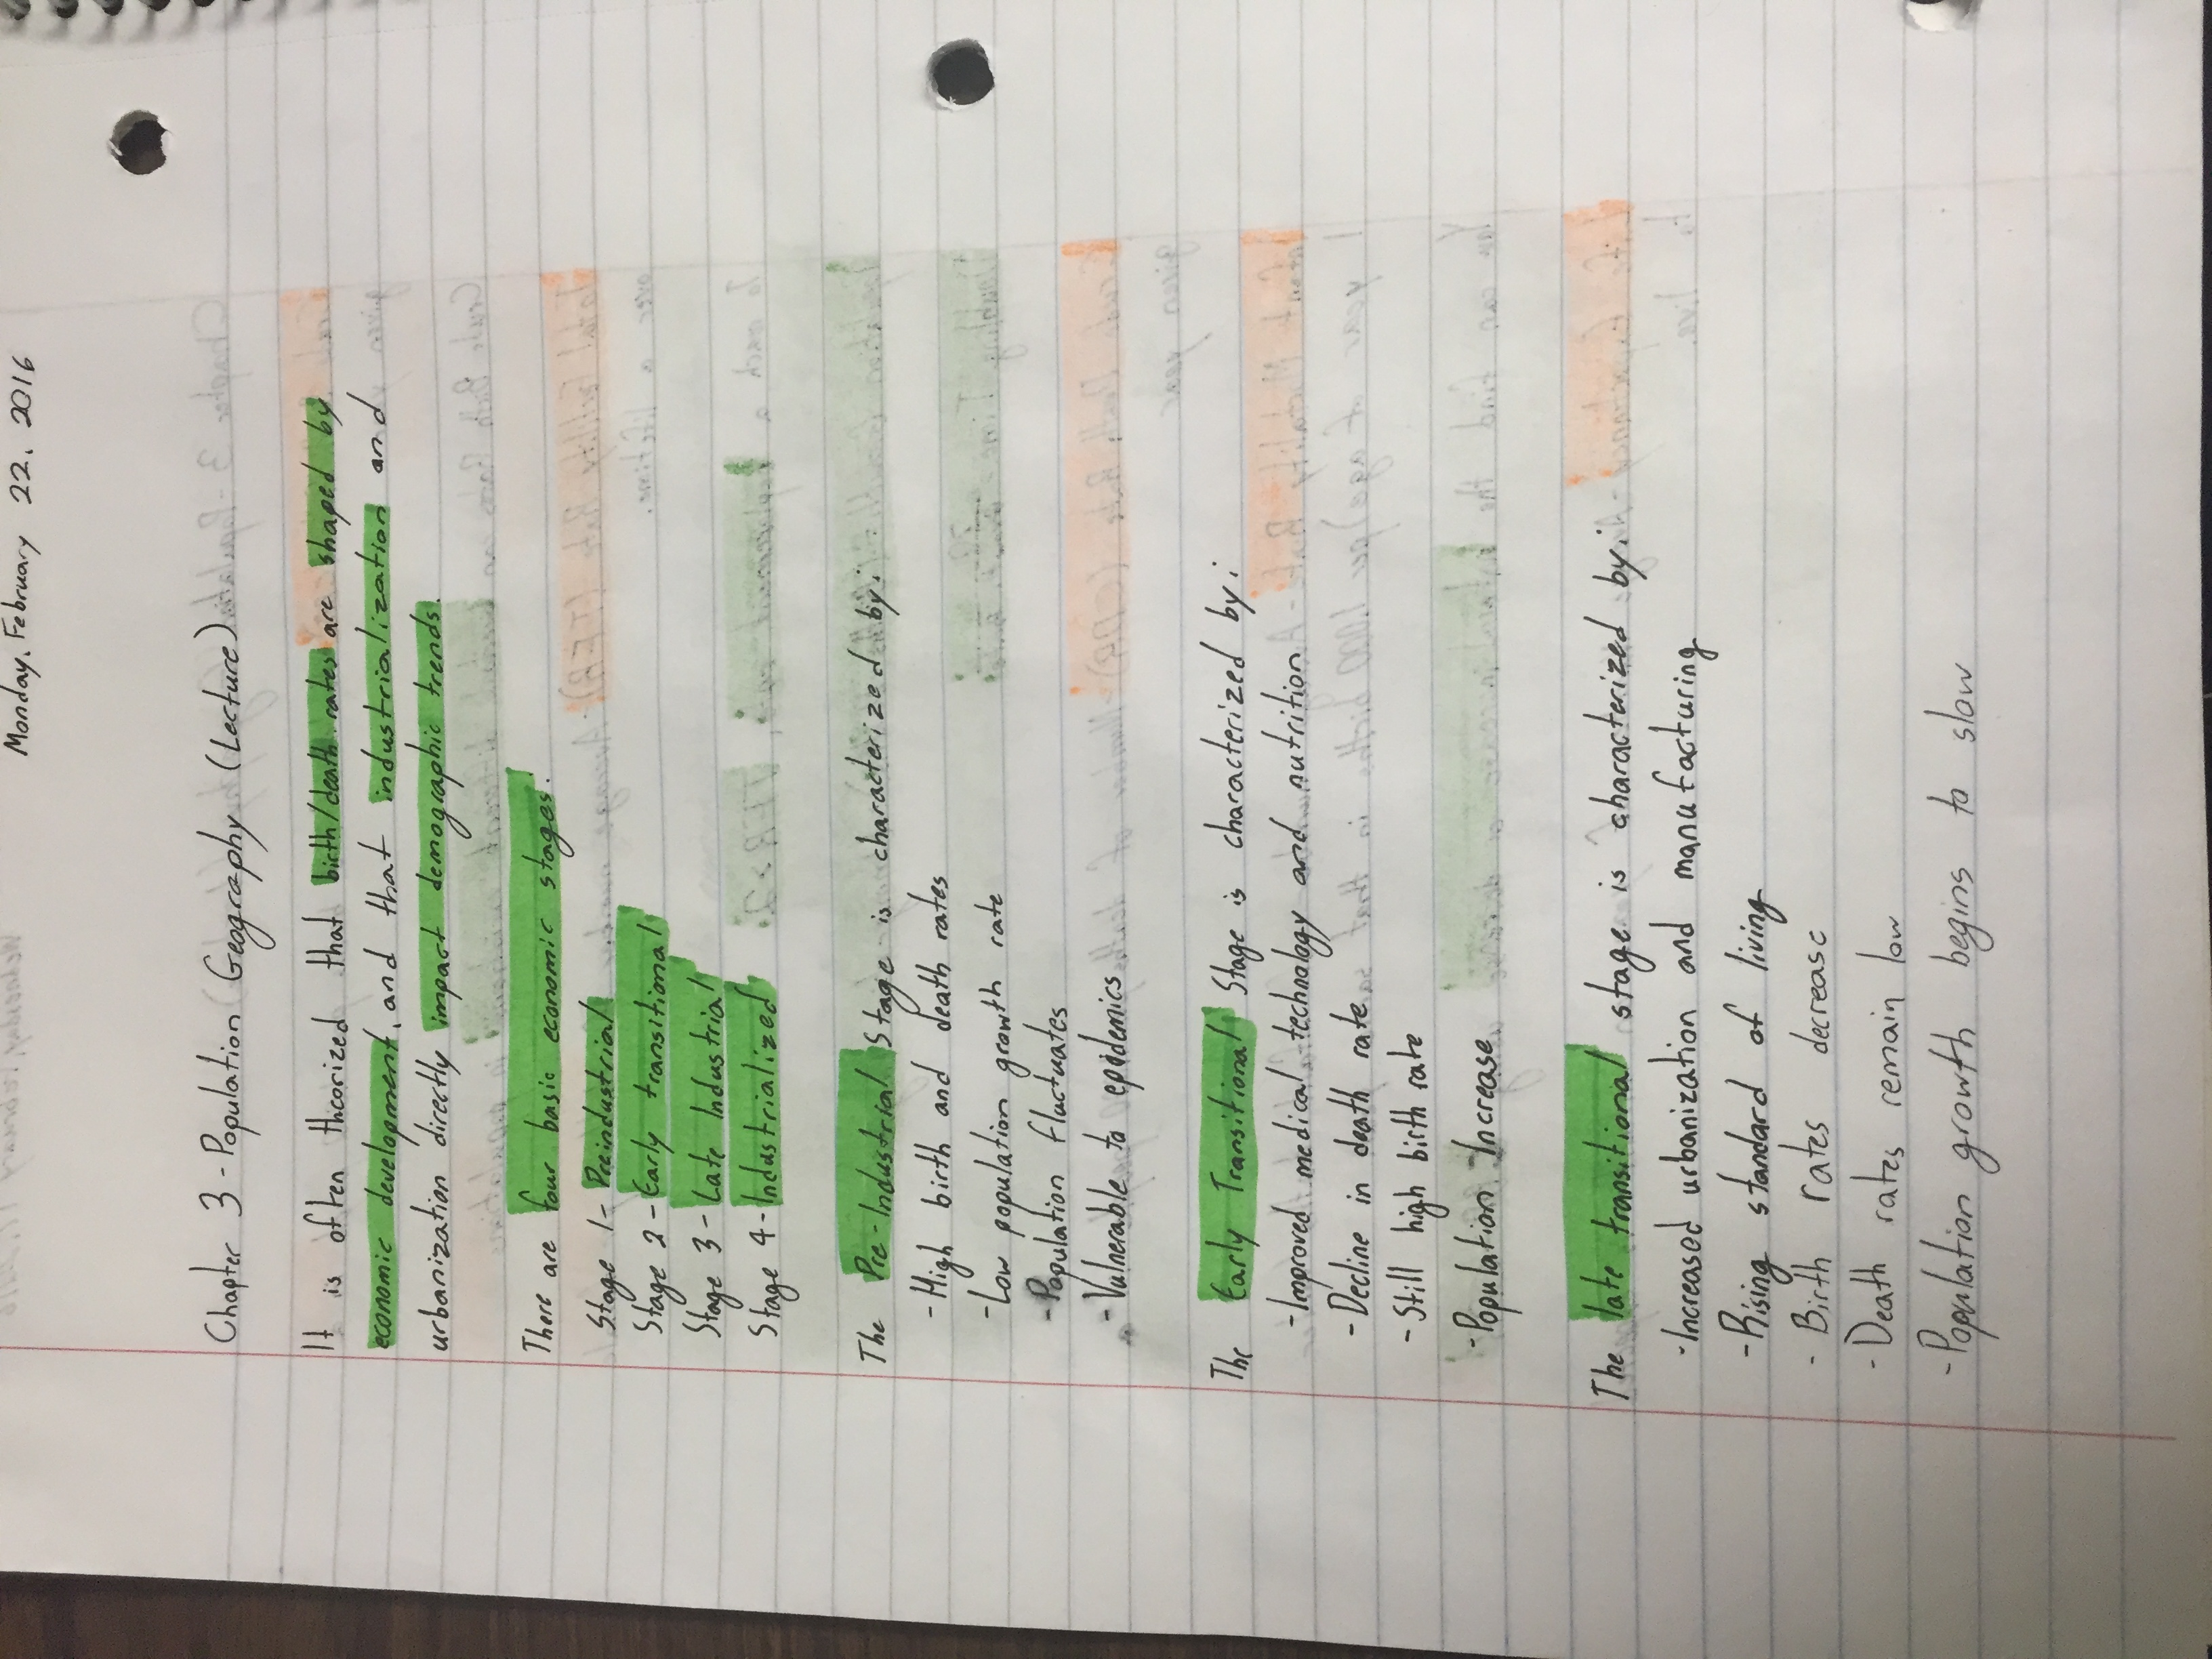 Monday, February 22, 2016
Chapter 3 - Population Geography (Lecture)
It is often theorized that birth/death rates are shaped by
economic development, and that industrialization and
urbanization directly impact demographic trends.
There are four basic economic stages.
Stage 1 - Preindustrial
Stage 2 - Early transitional
Stage 3 - Late Industrial
Stage 4 - Industrialized
The Pre-Industrial Stage is characterized by:
- High birth and death rates
- Low population growth rate
- Population fluctuates
- Vulnerable to epidemics
The Early Transitional Stage is characterized by:
- Improved medical technology and nutrition
- Decline in death rate
- Still high birth rate
- Population Increase
The late transitional stage is characterized by:
- Increased urbanization and manufacturing
- Rising standard of living
- Birth rates decrease
- Death rates remain low
- Population growth begins to slow